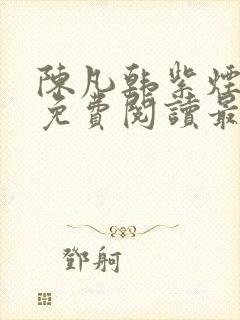 陳凡韓紫煙
免費閱讀最
鄧舸